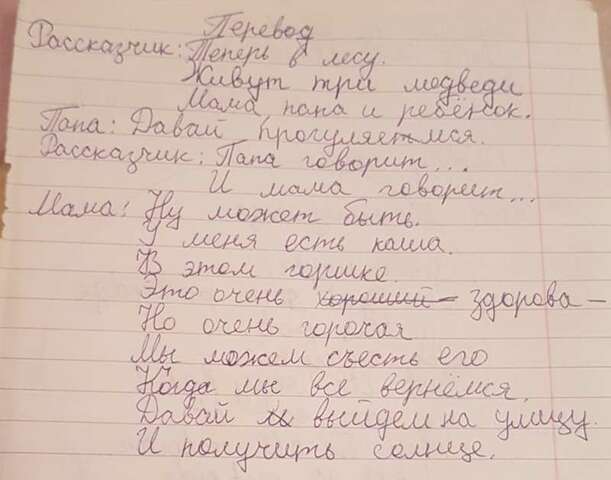 Перевод
Рассказчик: Теперь в лесу.
Живут три медведи
Мама папа и ребёнок.
Папа: Давай прогуляемся.
Рассказчик: Папа говорит...
И мама говорит...
Мама: Ну может быть.
У меня есть каша.
В этом горшке.
Это очень хороший здорова-
Но очень горочая
Мы можем съесть его
Когда мы все вернёмся,
Давай выйдем на улицу.
И получить солнце.